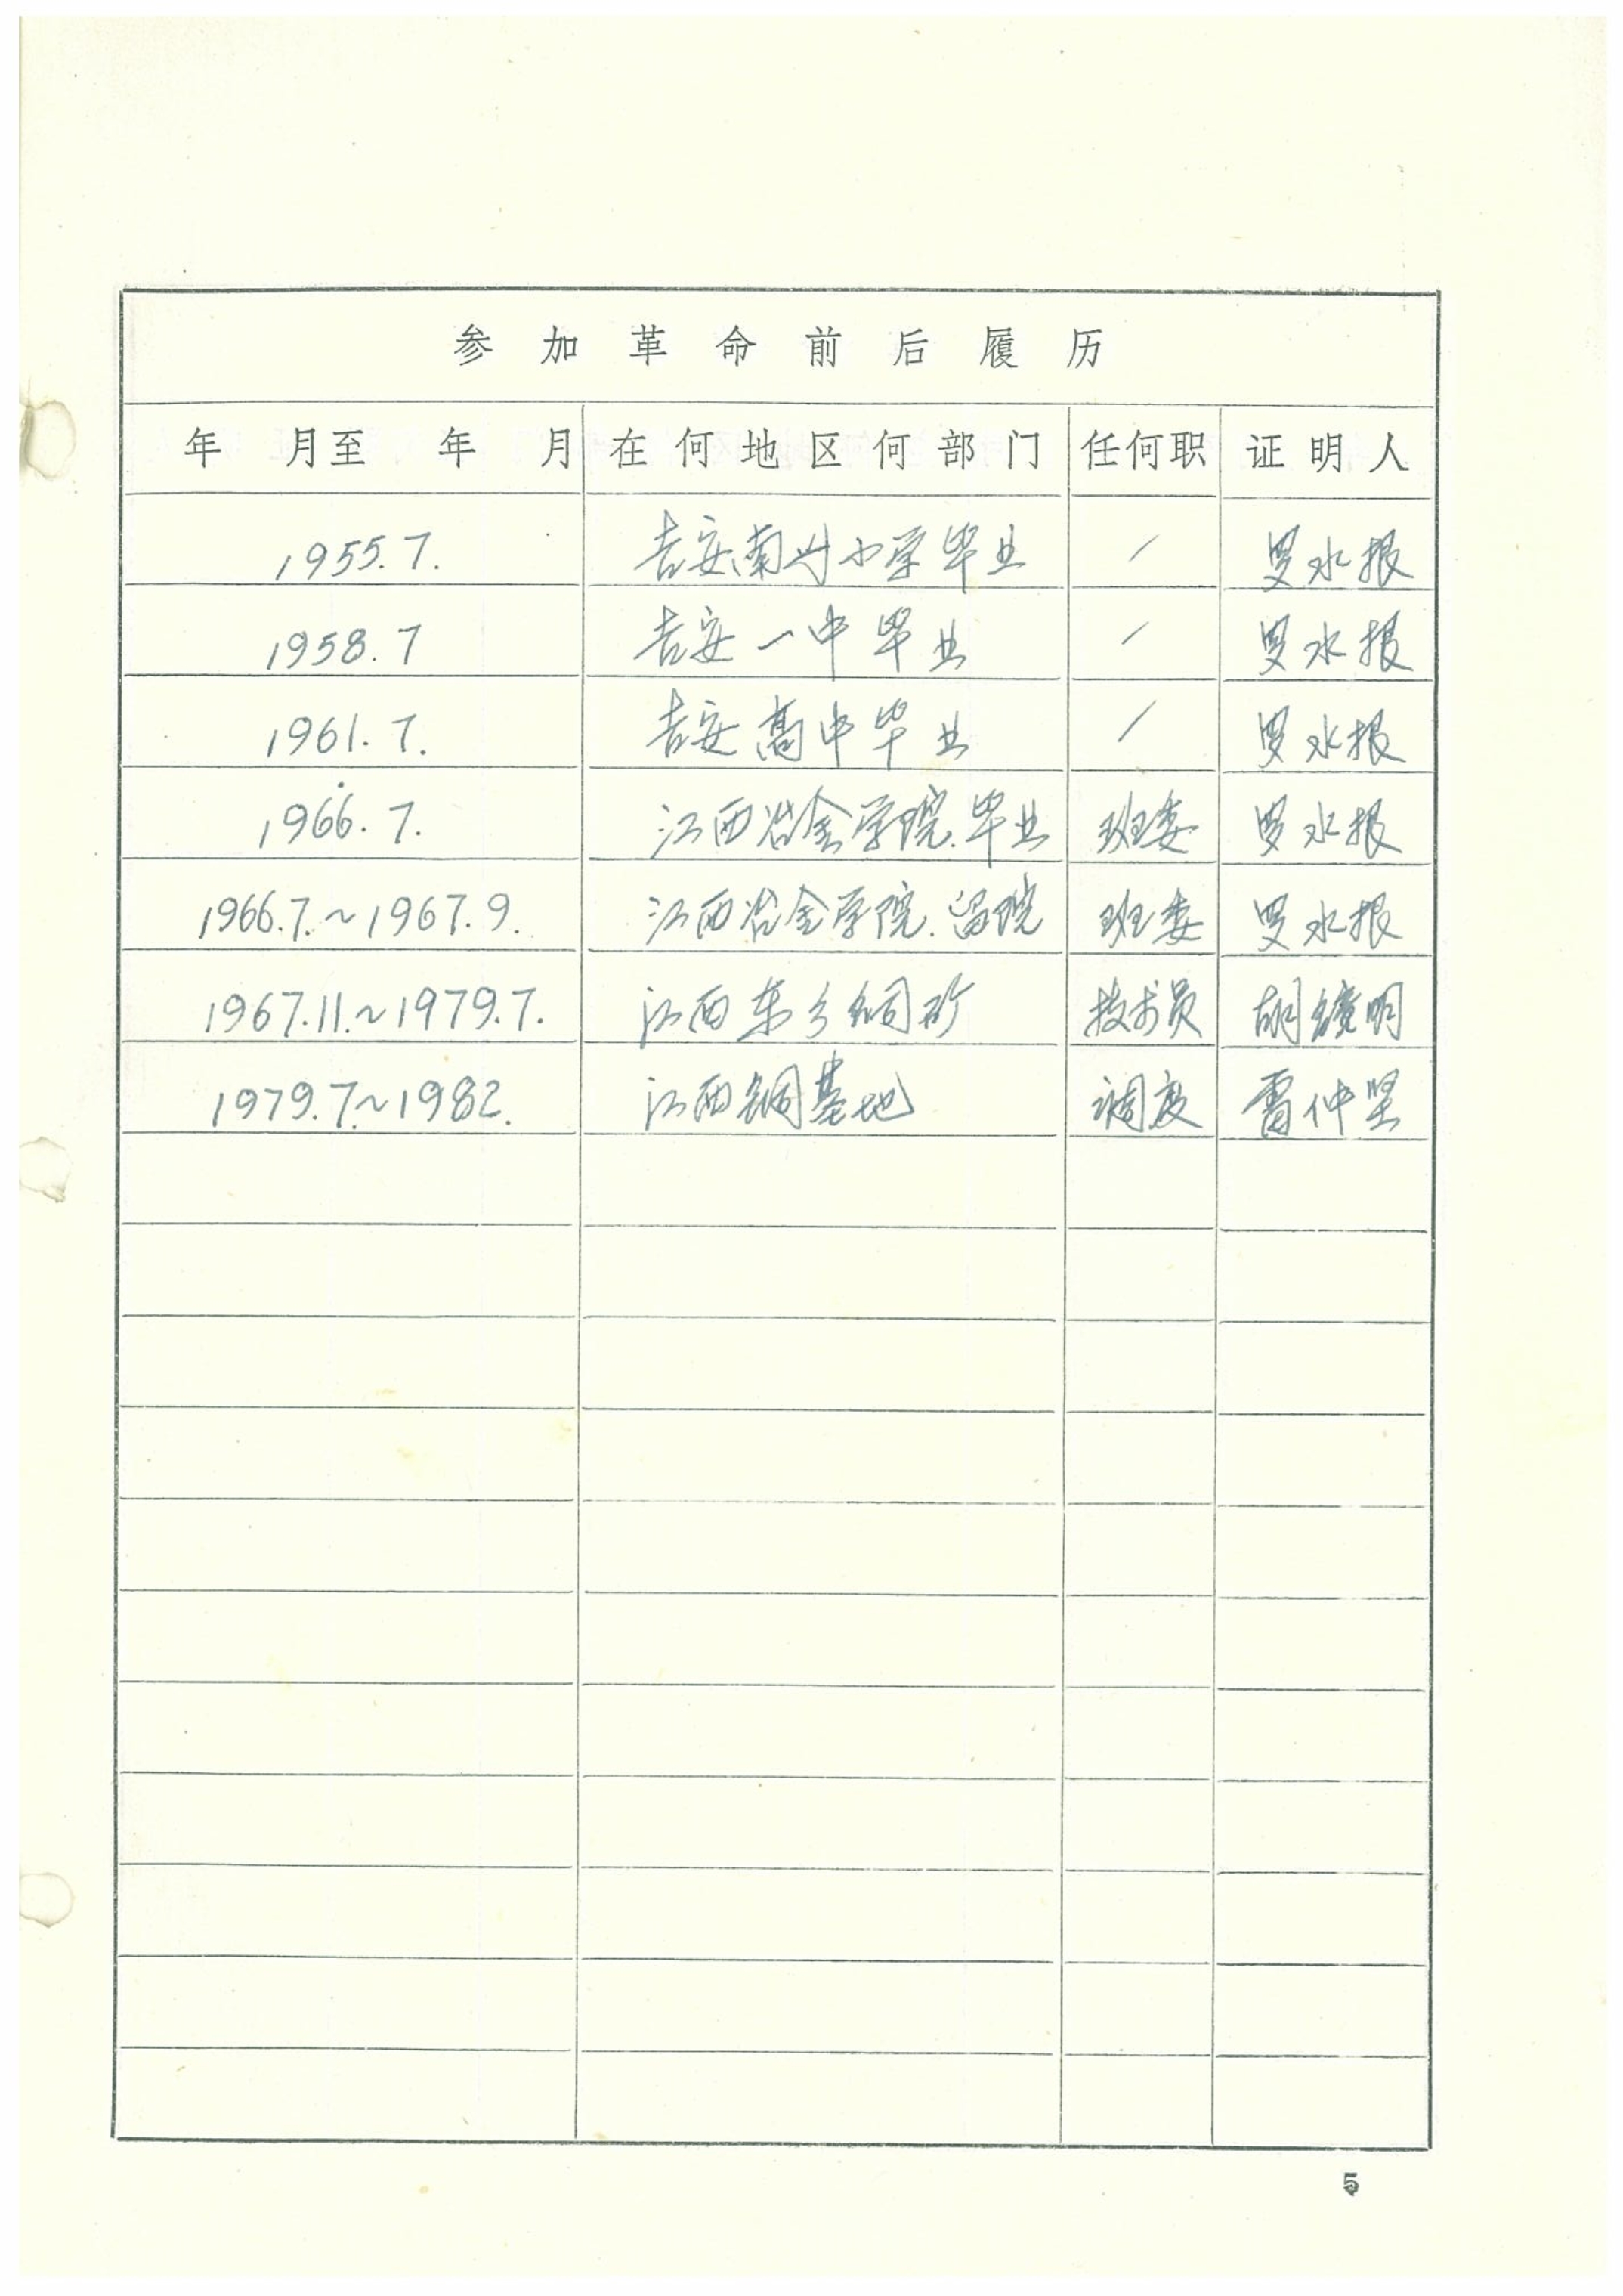 参加革命前后履历
年 月至 年 月 在何地区何部门 任何职 证明人
1955.7. 吉安南州小学毕业 / 罗水根
1958.7 吉安一中毕业 / 罗水根
1961.7. 吉安高中毕业 / 罗水根
1966.7. 江西冶金学院.毕业 班委 罗水根
1966.7.~1967.9. 江西冶金学院.留院 班委 罗水根
1967.11.~1979.7. 江西东乡铜矿 技术员 胡明
1979.7~1982. 江西铜基地 调度 雷仲坚
5